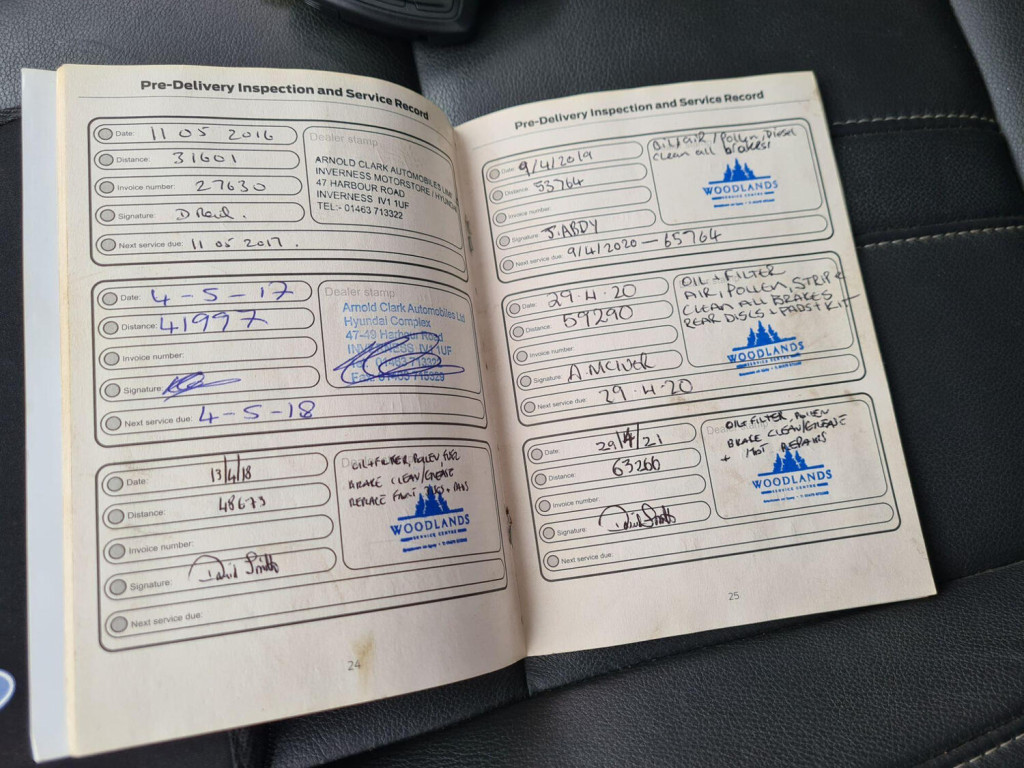 Pre-Delivery Inspection and Service Record
Date: 11 05 2016
Distance: 31601
Invoice number: 27630
Signature: D Reid.
Next service due: 11 05 2017.
Dealer stamp
ARNOLD CLARK AUTOMOBILES LIM
INVERNESS MOTORSTORE / HYUNDAI
47 HARBOUR ROAD
INVERNESS IV1 1UF
TEL:- 01463 713322
Date: 4-5-17
Distance: 41997
Invoice number:
Signature:
Next service due: 4-5-18
Dealer stamp
Arnold Clark Automobiles Ltd
Hyundai Complex
47-49 Harbour Road
INVERNESS IV1 1UF
Tel: 01463 713322
Fax: 01463 713329
Date: 13/4/18
Distance: 48673
Invoice number:
Signature: David Smith
Next service due:
OIL+FILTER, POLLEN FUEL
BRAKE CLEAN/GREASE
REPLACE FRNT DISC + PADS
WOODLANDS
SERVICE CENTRE
24
Pre-Delivery Inspection and Service Record
Date: 9/4/2019
Distance: 53764
Invoice number:
Signature: J. ABDY
Next service due: 9/4/2020 — 65764
Oil+air/Pollen, Diesel
clean all brakes!
WOODLANDS
SERVICE CENTRE
Date: 29.4.20
Distance: 59290
Invoice number:
Signature: A. MCIVER
Next service due: 29.4.20
OIL + FILTER
AIR, POLLEN, STRIP &
CLEAN ALL BRAKES
REAR DISCS + PADS + KIT
WOODLANDS
SERVICE CENTRE
Date: 29/4/21
Distance: 63266
Invoice number:
Signature: David Smith
Next service due:
Dealer stamp
OIL+FILTER, POLLEN
BRAKE CLEAN/GREASE
+ MOT REPAIRS
WOODLANDS
SERVICE CENTRE
25